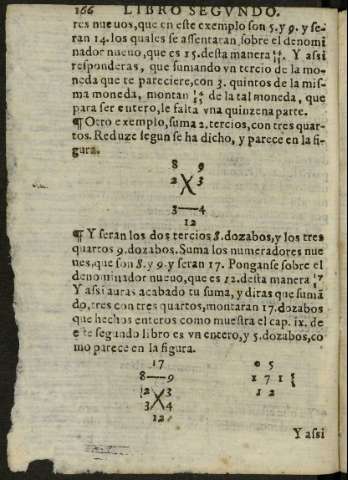 166 LIBRO SEGVNDO.
res nueuos, que en este exemplo son 5. y 9. y se-
ran 14. los quales se assentaran sobre el denomi
nador nueuo, que es 15. desta manera 14/15 Y assi
responderas, que sumando vn tercio de la mo-
neda que te pareciere, con 3. quintos de la mis-
ma moneda, montan 14/15 de la tal moneda, que
para ser entero, le falta vna quinzena parte.
¶ Otro exemplo, suma 2. tercios, con tres quar-
tos. Reduze segun se ha dicho, y parece en la fi-
gura.
8 9
2 X 3
3 — 4
12
¶ Y seran los dos tercios 8. dozabos, y los tres
quartos 9. dozabos. Suma los numeradores nue
ues, que son 8. y 9. y seran 17. Ponganse sobre el
denominador nueuo, que es 12. desta manera 17/12
Y assi auras acabado tu suma, y diras que sumã
do, tres con tres quartos, montaran 17. dozabos
que hechos enteros como muestra el cap. ix. de
este segundo libro es vn entero, y 5. dozabos, co
mo parece en la figura.
17 0 5
8 — 9 1 7 1 5/12
2 X 3 1 2
3 4
12
Y assi